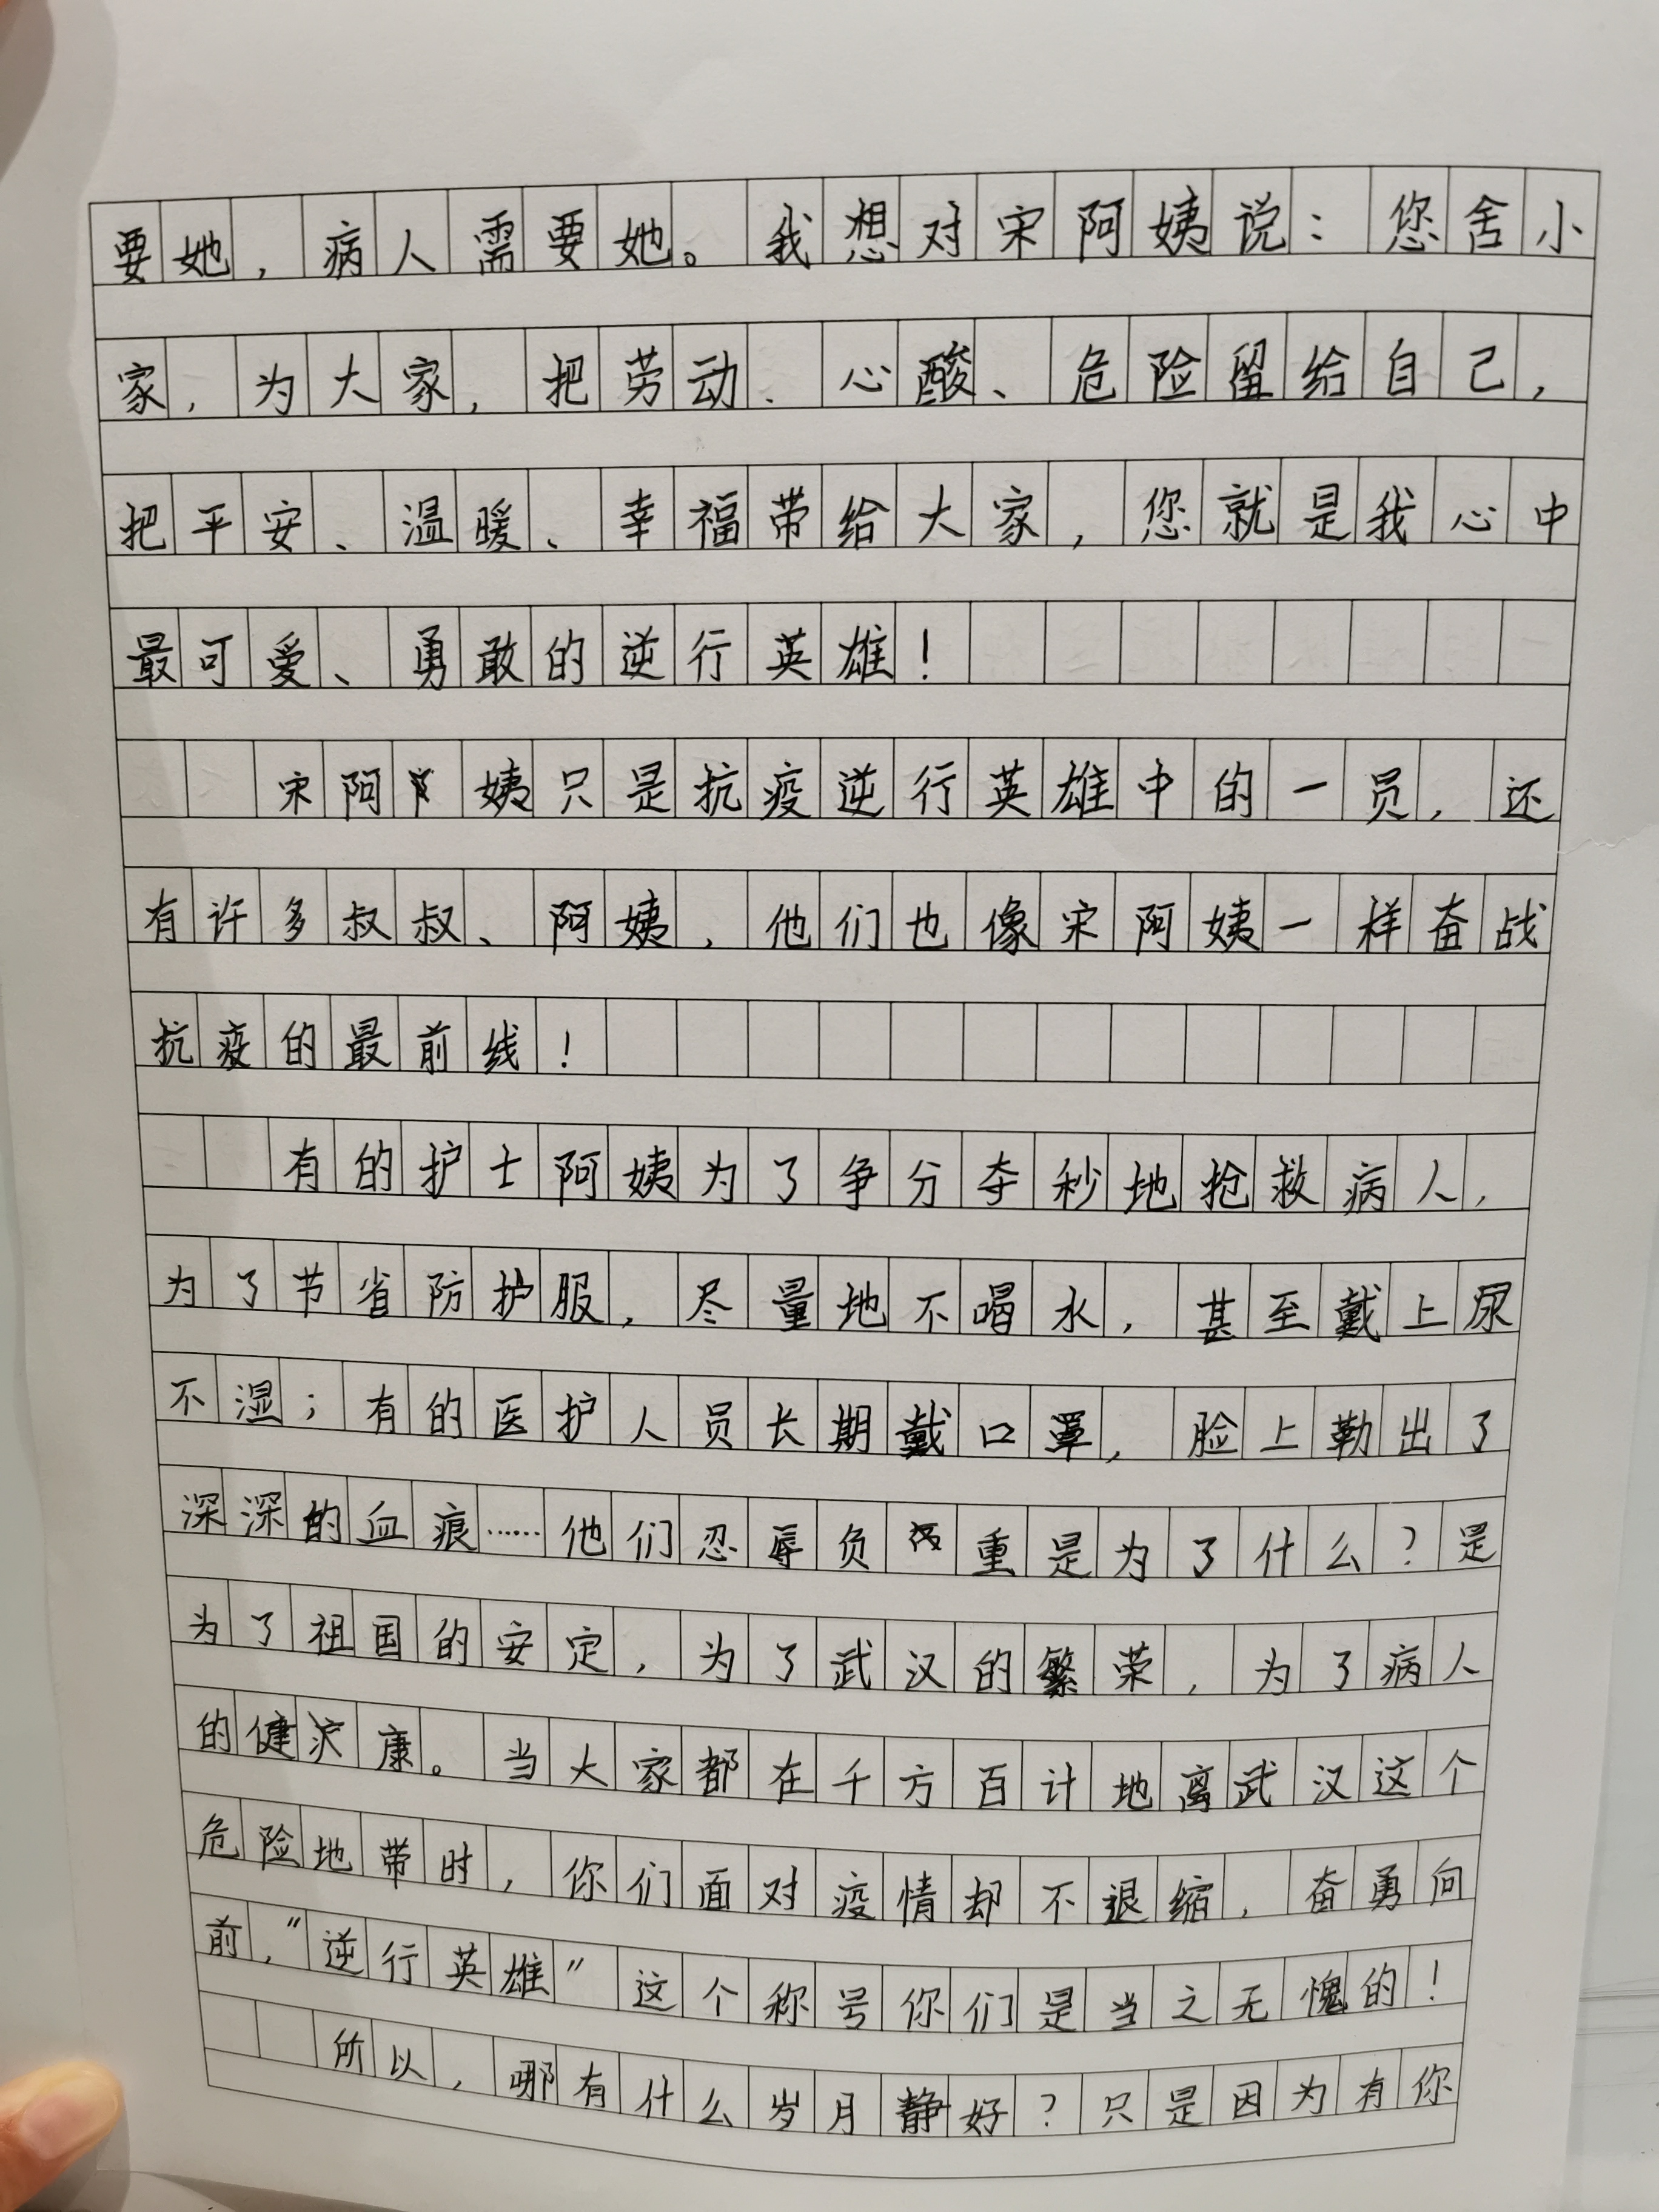 要她，病人需要她。我想对宋阿姨说：您舍小
家，为大家，把劳动、心酸、危险留给自己，
把平安、温暖、幸福带给大家，您就是我心中
最可爱、勇敢的逆行英雄！
宋阿姨只是抗疫逆行英雄中的一员，还
有许多叔叔、阿姨，他们也像宋阿姨一样奋战
抗疫的最前线！
有的护士阿姨为了争分夺秒地抢救病人，
为了节省防护服，尽量地不喝水，甚至戴上尿
不湿；有的医护人员长期戴口罩，脸上勒出了
深深的血痕……他们忍辱负重是为了什么？是
为了祖国的安定，为了武汉的繁荣，为了病人
的健康。当大家都在千方百计地离武汉这个
危险地带时，你们面对疫情却不退缩，奋勇向
前，“逆行英雄”这个称号你们是当之无愧的！
所以，哪有什么岁月静好？只是因为有你